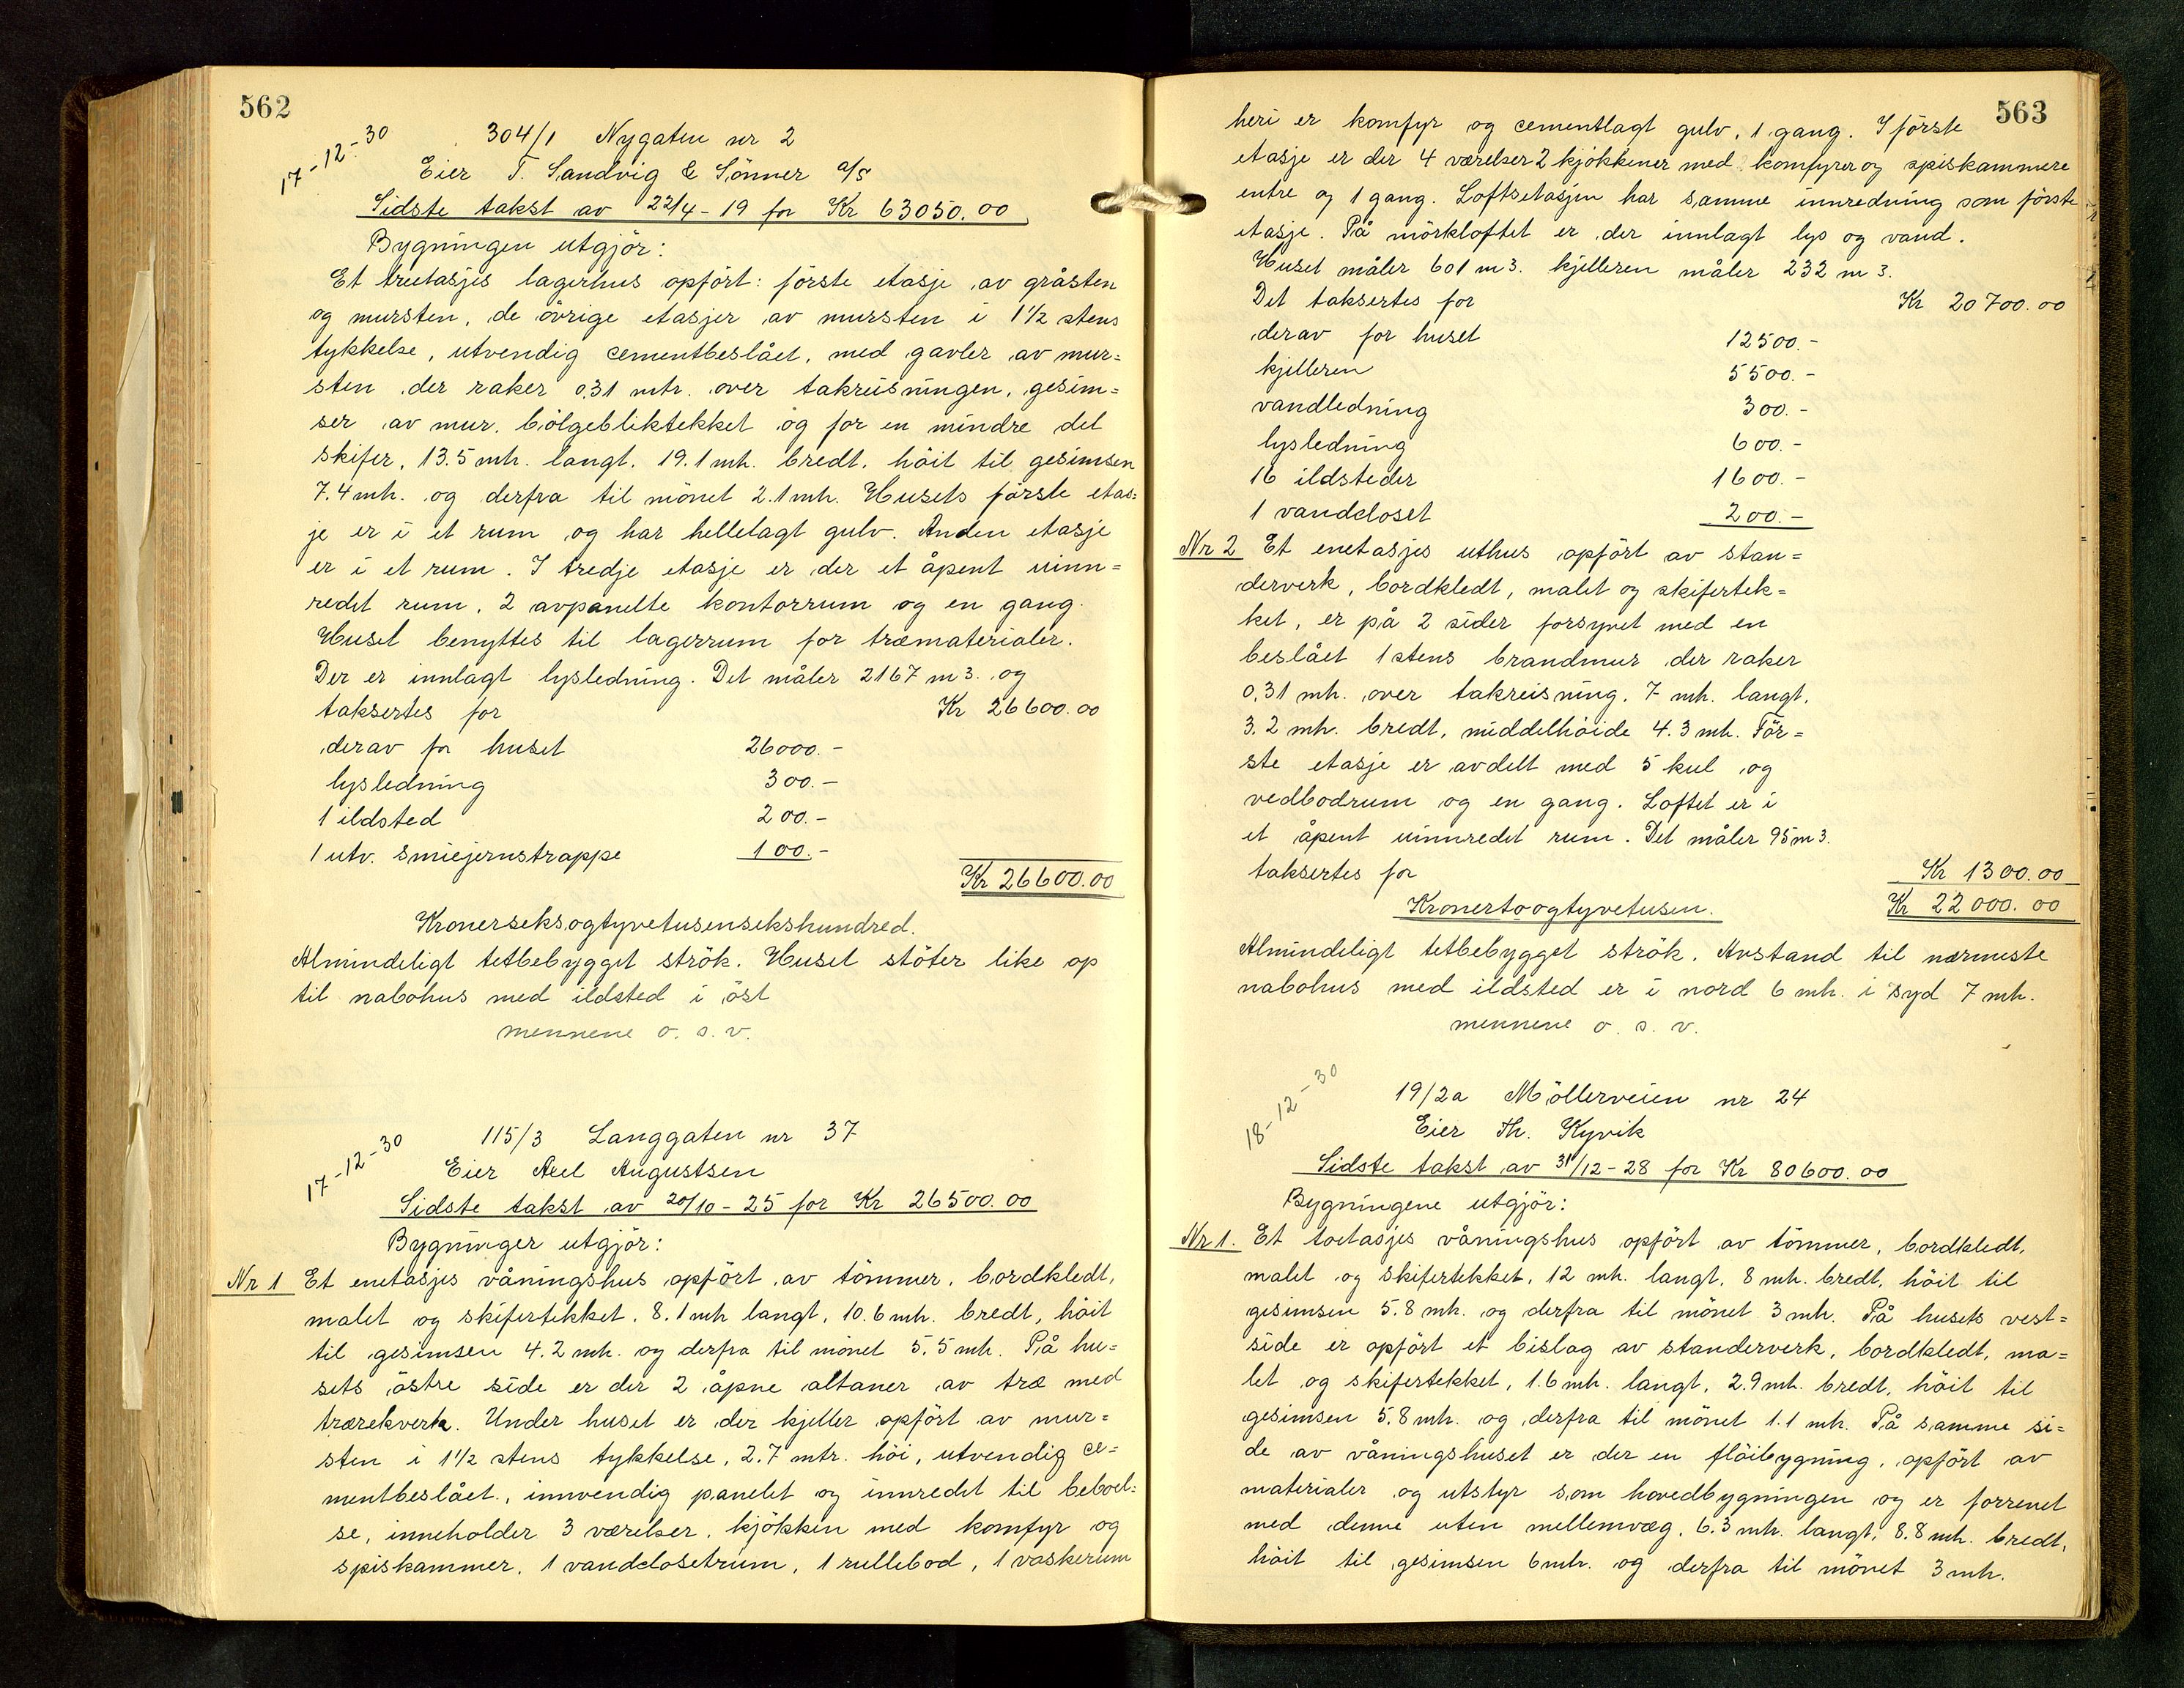 562
17-12-30
304/1 Nygaten nr 2
Eier T. Sandvig & Sönner a/s
Sidste takst av 22/4-19 for Kr 63050.00
Bygningen utgjör:
Et treetasjes lagerhus opfört: förste etasje av gråsten
og mursten, de övrige etasjer av mursten i 1½ stens
tykkelse, utvendig cementbeslået, med gavler av mur=
sten der raker 0.31 mtr. over takreisningen, gesim=
ser av mur. bölgebliktekket og for en mindre del
skifer, 13.5 mtr. langt. 19.1 mtr. bredt. höit til gesimsen
7.4 mtr. og derfra til mönet 2.1 mtr. Husets förste etas=
je er i et rum og har hellelagt gulv. Anden etasje
er i et rum. I tredje etasje er der et åpent uinn=
redet rum, 2 avpanelte kontorrum og en gang.
Huset benyttes til lagerrum for træmaterialer.
Der er innlagt lysledning. Det måler 2167 m3. og
taksertes for Kr 26600.00
derav for huset 26000.-
lysledning 300.-
1 ildsted 200.-
1 utv. smiejernstrappe 100.-
Kr 26600.00
Kronerseksogtyvetusensekshundred.
Almindeligt tetbebygget strök. Huset stöter like op
til nabohus med ildsted i öst
mennene o. s. v.
17-12-30
115/3 Langgaten nr 37
Eier Axel Augustsen
Sidste takst av 20/10-25 for Kr 26500.00
Bygninger utgjör:
Nr 1 Et enetasjes våningshus opfört av tömmer, bordkledt,
malet og skifertekket. 8.1 mtr langt, 10.6 mtr. bredt, höit
til gesimsen 4.2 mtr. og derfra til mönet 5.5 mtr. På hu=
sets östre side er der 2 åpne altaner av træ med
trærekverk. Under huset er der kjeller opfört av mur=
sten i 1½ stens tykkelse, 2.7 mtr. höi, utvendig ce=
mentbeslået, innvendig panelet og innredet til beboel=
se, inneholder 3 værelser, kjökken med komfyr og
spiskammer, 1 vandclosetrum, 1 rullebod, 1 vaskerum
563
heri er komfyr og cementlagt gulv, 1 gang. I förste
etasje er der 4 værelser 2 kjökkener med komfyrer og spiskammere
entre og 1 gang. Loftsetasjen har samme innredning som förste
etasje. På mörkloftet er der innlagt lys og vand.
Huset måler 601 m3. kjelleren måler 232 m3.
Det taksertes for Kr 20700.00
derav for huset 12500.-
kjelleren 5500.-
vandledning 300.-
lysledning 600.-
16 ildsteder 1600.-
1 vandcloset 200.-
Nr 2 Et enetasjes uthus opfört av stan=
derverk, bordkledt, malet og skifertek=
ket, er på 2 sider forsynet med en
beslået 1 stens brandmur der raker
0,31 mtr. over takreisning. 7 mtr. langt,
3.2 mtr. bredt, middelhöide 4.3 mtr. För=
ste etasje er avdelt med 5 kul og
vedbodrum og en gang. Loftet er i
et åpent uinnredet rum. Det måler 95 m3.
taksertes for Kr 1300.00
Kronertoogtyvetusen. Kr 22000.00
Almindeligt tetbebygget strök. Avstand til nærmeste
nabohus med ildsted er i nord 6 mtr. i syd 7 mtr.
mennene o. s. v.
18-12-30
19/2a Möllerveien nr 24
Eier Th. Kyvik
Sidste takst av 31/12-28 for Kr 80600.00
Bygningene utgjör:
Nr 1. Et toetasjes våningshus opfört av tömmer, bordkledt,
malet og skifertekket, 12 mtr. langt, 8 mtr. bredt, höit til
gesimsen 5.8 mtr. og derfra til mönet 3 mtr. På husets vest=
side er opfört et bislag av standerverk, bordkledt, ma=
let og skifertekket, 1.6 mtr. langt, 2.9 mtr. bredt, höit til
gesimsen 5.8 mtr. og derfra til mönet 1.1 mtr. På samme si=
de av våningshuset er der en flöibygning, opfört av
materialer og utstyr som hovedbygningen og er forrenet
med denne uten mellemvæg, 6.3 mtr. langt, 8.8 mtr. bredt,
höit til gesimsen 6 mtr. og derfra til mönet 3 mtr.